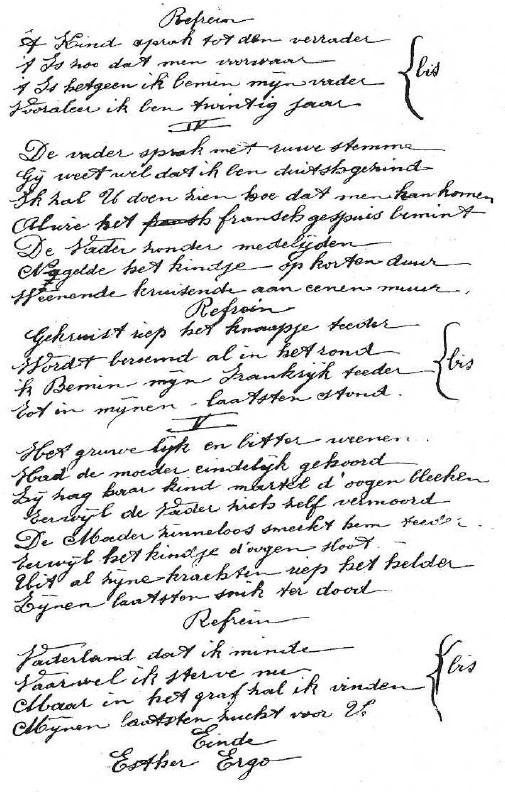 Refrein
't Kind sprak tot den verrader
't Is hoe dat men voorwaar
't Is hetgeen ik bemin mijn vader
Vooraleer ik ben twintig jaar
bis
IV
De vader sprak met ruwe stemme
Gij weet wel dat ik ben duitschgezind
Ik zal U doen zien hoe dat men kan komen
Alwie het fransch gespuis bemint
De Vader zonder medelijden
Naggelde het kindje op korten duur
Weenende kruisende aan eenen muur.
Refrein
Gekruist riep het knaapje teeder
Wordt beroemd al in het rond
ik Bemin mijn Frankrijk teeder
Tot in mijnen laatsten stond.
bis
V
Het gruwelijk en bitter weenen.
Had de moeder eindelijk gehoord
Zij zag haar kind martel d'oogen bleeken
Terwijl de Vader zich zelf vermoord
De Moeder zinneloos smeekt hem teeder.
Terwijl het kindje d'oogen sloot.
Uit al zijne krachten riep het helder
Zijnen laatsten snik ter dood
Refrein
Vaderland dat ik minde
Vaarwel ik sterve nu
Maar in het graf zal ik vinden
Mijnen laatsten zucht voor U.
bis
Einde
Esther Ergo